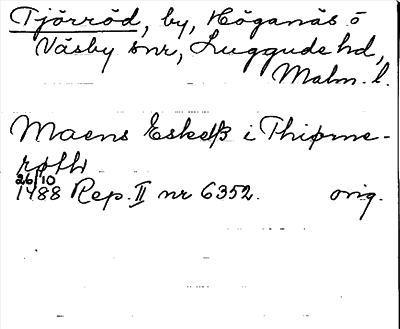 Tjörröd, by, Höganäs ö
Väsby snr, Luggude hd,
Malm. l.
Maens Eskelß i Thiørme-
røthr
26/10
1488 Rep. II nr 6352. orig.